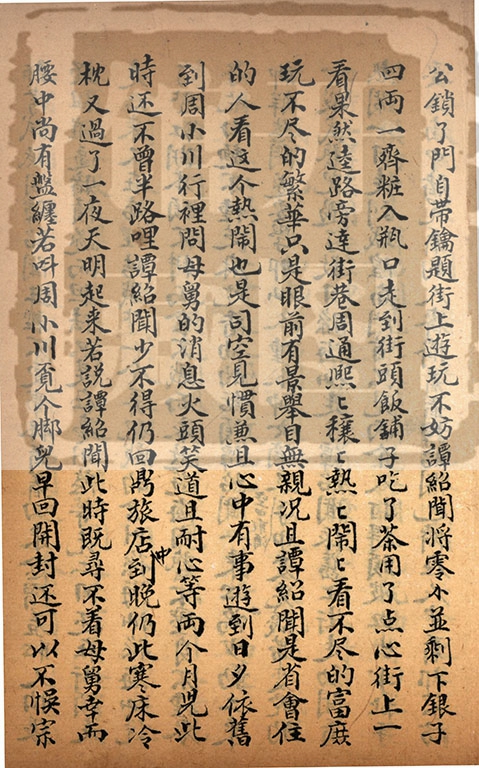 公鎖了門自帶鑰題街上遊玩不妨譚紹聞將零小並剩下銀子
四両一齊粧入瓶口走到街頭飯舖子吃了茶用了点心街上一
看果然逵路旁達街巷周通熙〻穰〻熱〻鬧〻看不尽的富庶
玩不尽的繁華只是眼前有景舉目無親况且譚紹聞是省會住
的人看这个熱鬧也是司空見慣兼且心中有事遊到日夕依舊
到周小川行裡問母舅的消息火頭笑道且耐心等両个月児此
時还不曾半路哩譚紹聞少不得仍回鳥旅店到晚仍此寒床冷
枕又過了一夜天明起来若説譚紹聞此時既尋不着母舅幸而
腰中尚有盤纏若呌周小川覔个脚児早回開封还可以不悞宗